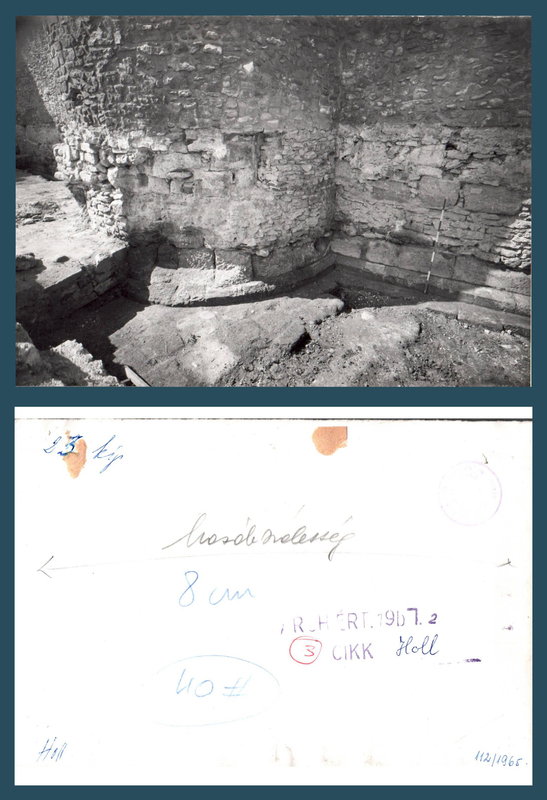 23 kép
hasábszélesség
8 cm
ARCH. ÉRT. 1967. 2
3 CIKK Holl
40 #
Holl
112/1965.